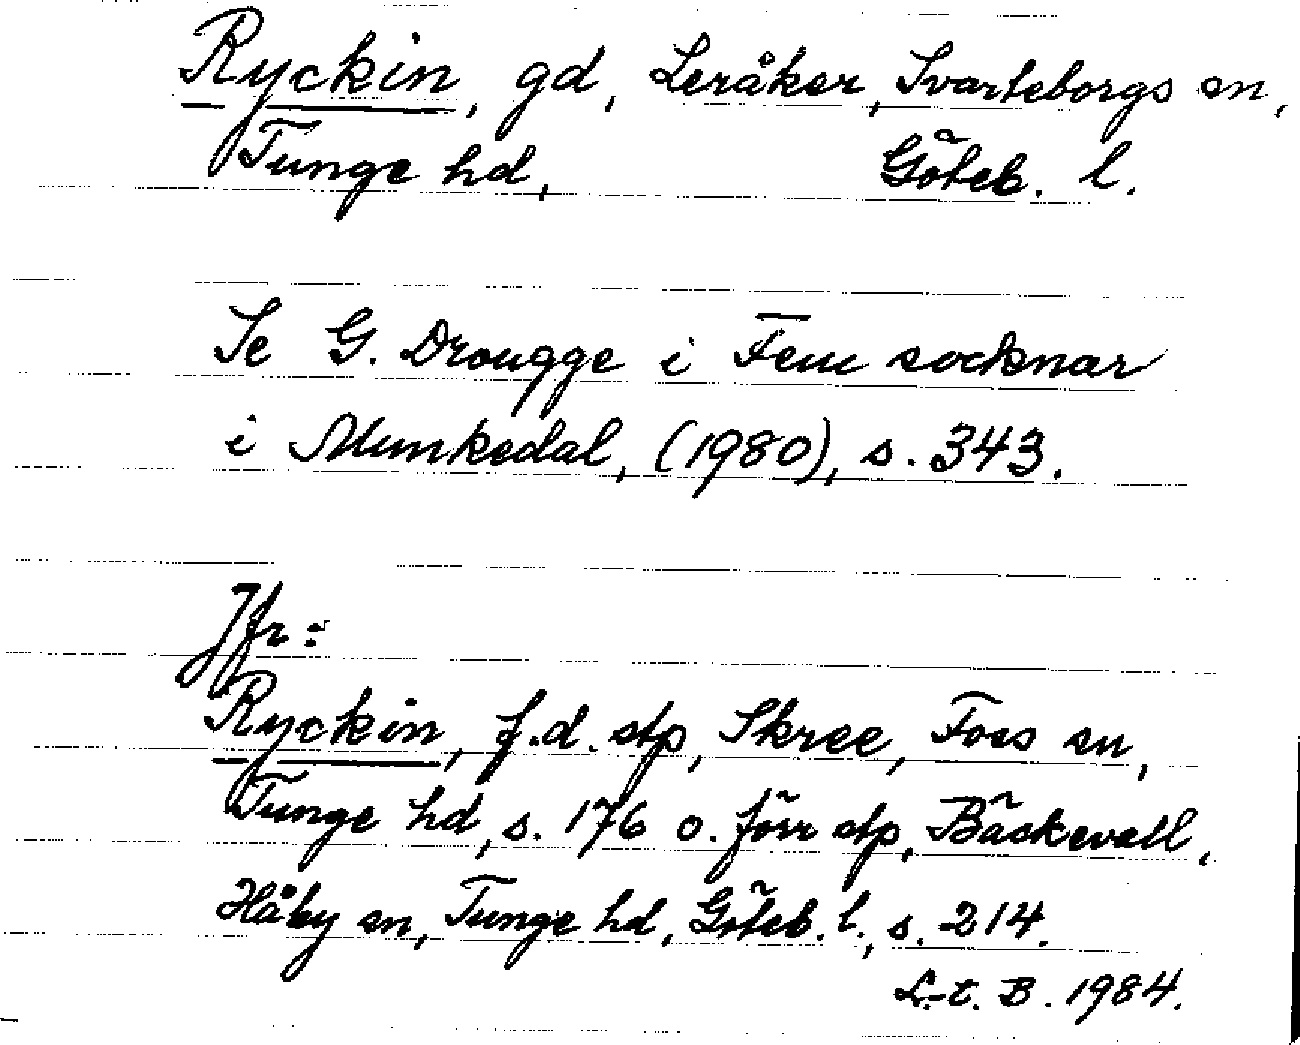 Ryckin, gd, Leråker, Svarteborgs sn,
Tunge hd, Göteb. l.
Se G. Drougge i Fem socknar
i Munkedal, (1980), s. 343.
Jfr:
Ryckin, f.d. stp, Skree, Foss sn,
Tunge hd, s. 176 o. förr stp, Bäckevall,
Håby sn, Tunge hd, Göteb. l., s. 214.
L-t. B. 1984.